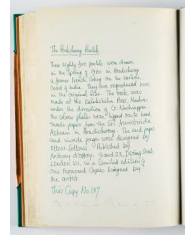 The Pondicherry Pastels
These eighty five pastels were drawn
in the Spring of 1970 in Pondicherry
a former French colony on the
Coast of India. They are reproduced here
in the original size. The book was
made at the Kalakshetra Press, Madras
under the direction of
the colour plates were tipped onto hand
made papers from the Sri Aurobindo
Ashram in Pondicherry. The end paper
and inside pages were designed by
Published by
Anthony d'Offay, 9 and 23, Dering Street
London W1, in a limited edition of
one thousand copies designed by
the artist.
This Copy No. 197